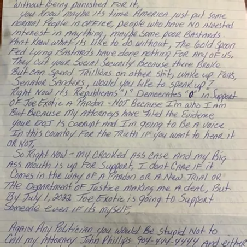 Without being punished for it,
you know maybe its time America just put some
normal People in office, people who have no vested
interest in anything, maybe some poor Bastards
that know what its like to do without, the Good Spirit
Fed living Senators have done nothing for any of us,
They cut your Social Security because there Broke
But can spend Trillions on other shit, wake up Pubs,
Senators, would you like to speak up?
Right Now its Republicans "1" Democrates "0" in support
of Joe Exotic a Pardon - NOT Because I'm who I am
But Because my attorneys have filed the Evidence
your DOJ is corrupt and I'm going to Be a voice
In this country for the Truth if you want to hear it
or NOT,
So Right Now - my crooked ass case and my Big
Ass mouth is up for support, I don't care if it
comes in the way of a Pardon or a New Trial or
the Department of Justice making me a deal, But
By July 1, Joe Exotic is going to support
someone even if its myself
Again Any Politician you would Be stupid Not to
call my attorney John Phillips 904-444-4444 and